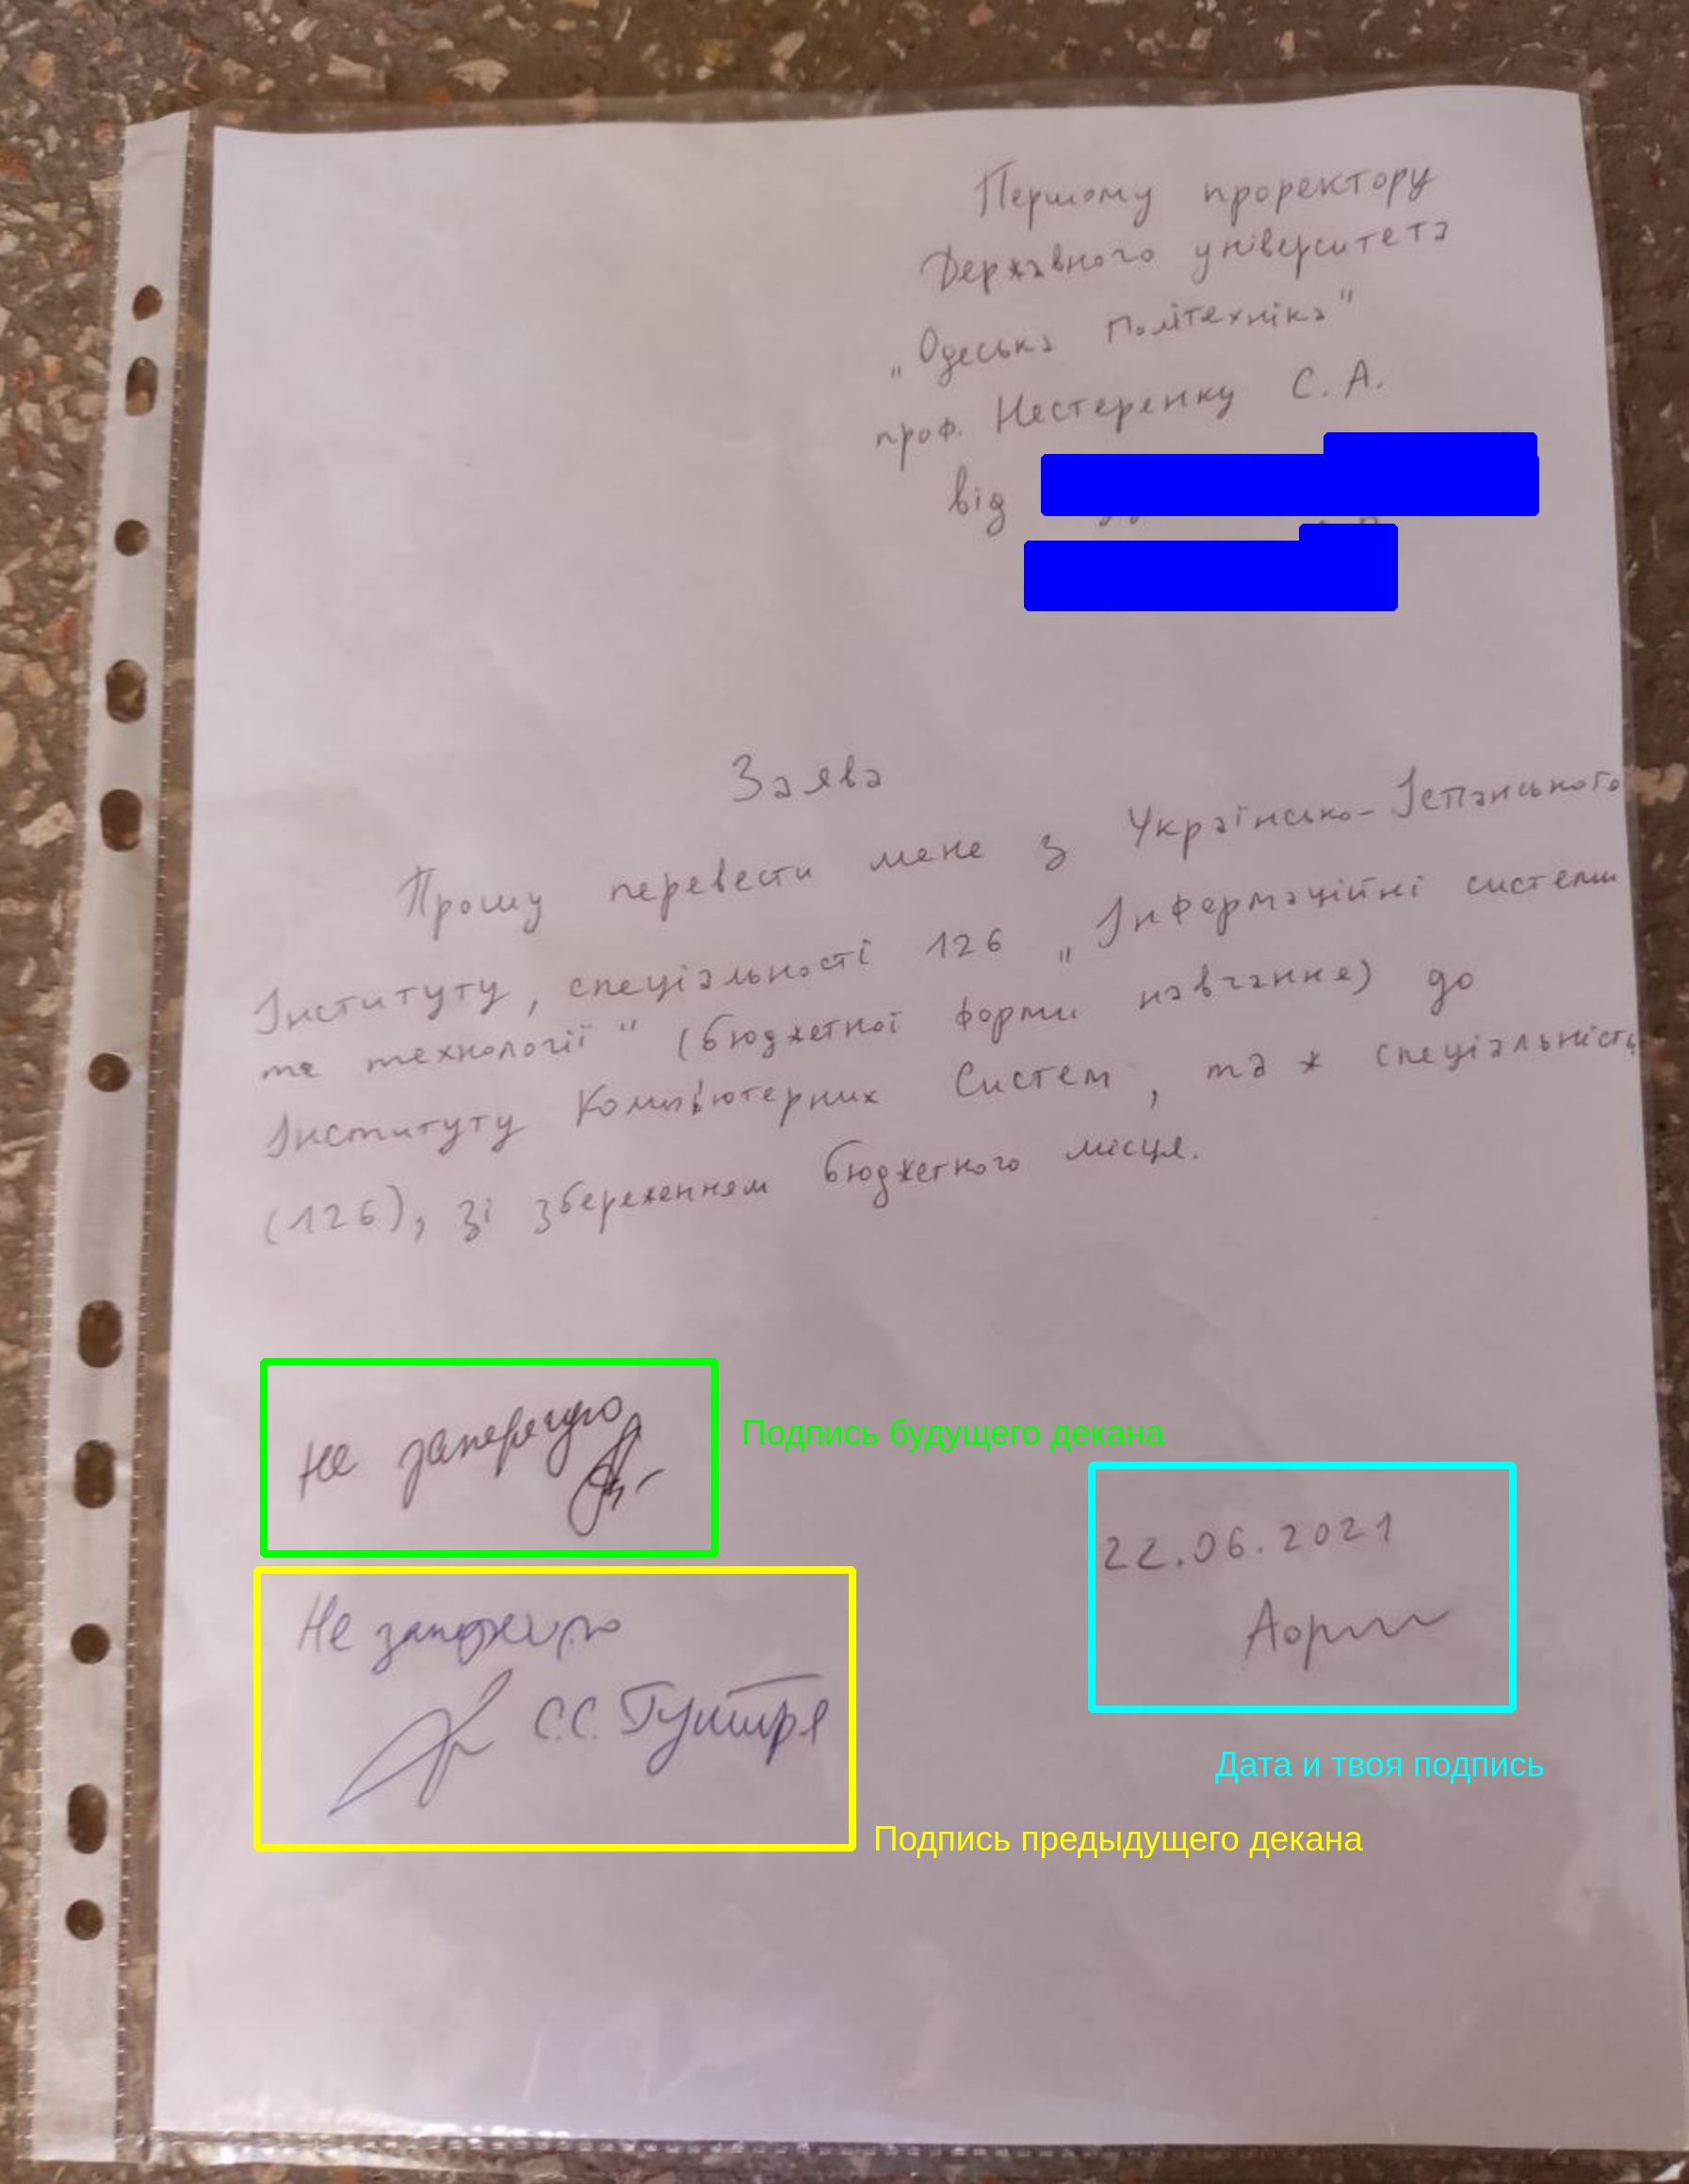 Першому проректору
Державного університета
„Одеська Політехніка"
проф. Нестеренку С. А.
від
Заява
Прошу перевести мене з Українсько-Іспанського
Інституту, спеціальності 126 „Інформаційні системи
та технології" (бюджетної форми навчання) до
Інституту Комп'ютерних Систем, та ж спеціальність
(126), зі збереженням бюджетного місця.
Не заперечую
Подпись будущего декана
22.06.2021
Не заперечую
С.С. Гунтря
Дата и твоя подпись
Подпись предыдущего декана